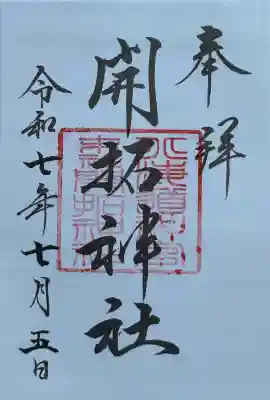 奉拝
開拓神社
令和七年七月五日